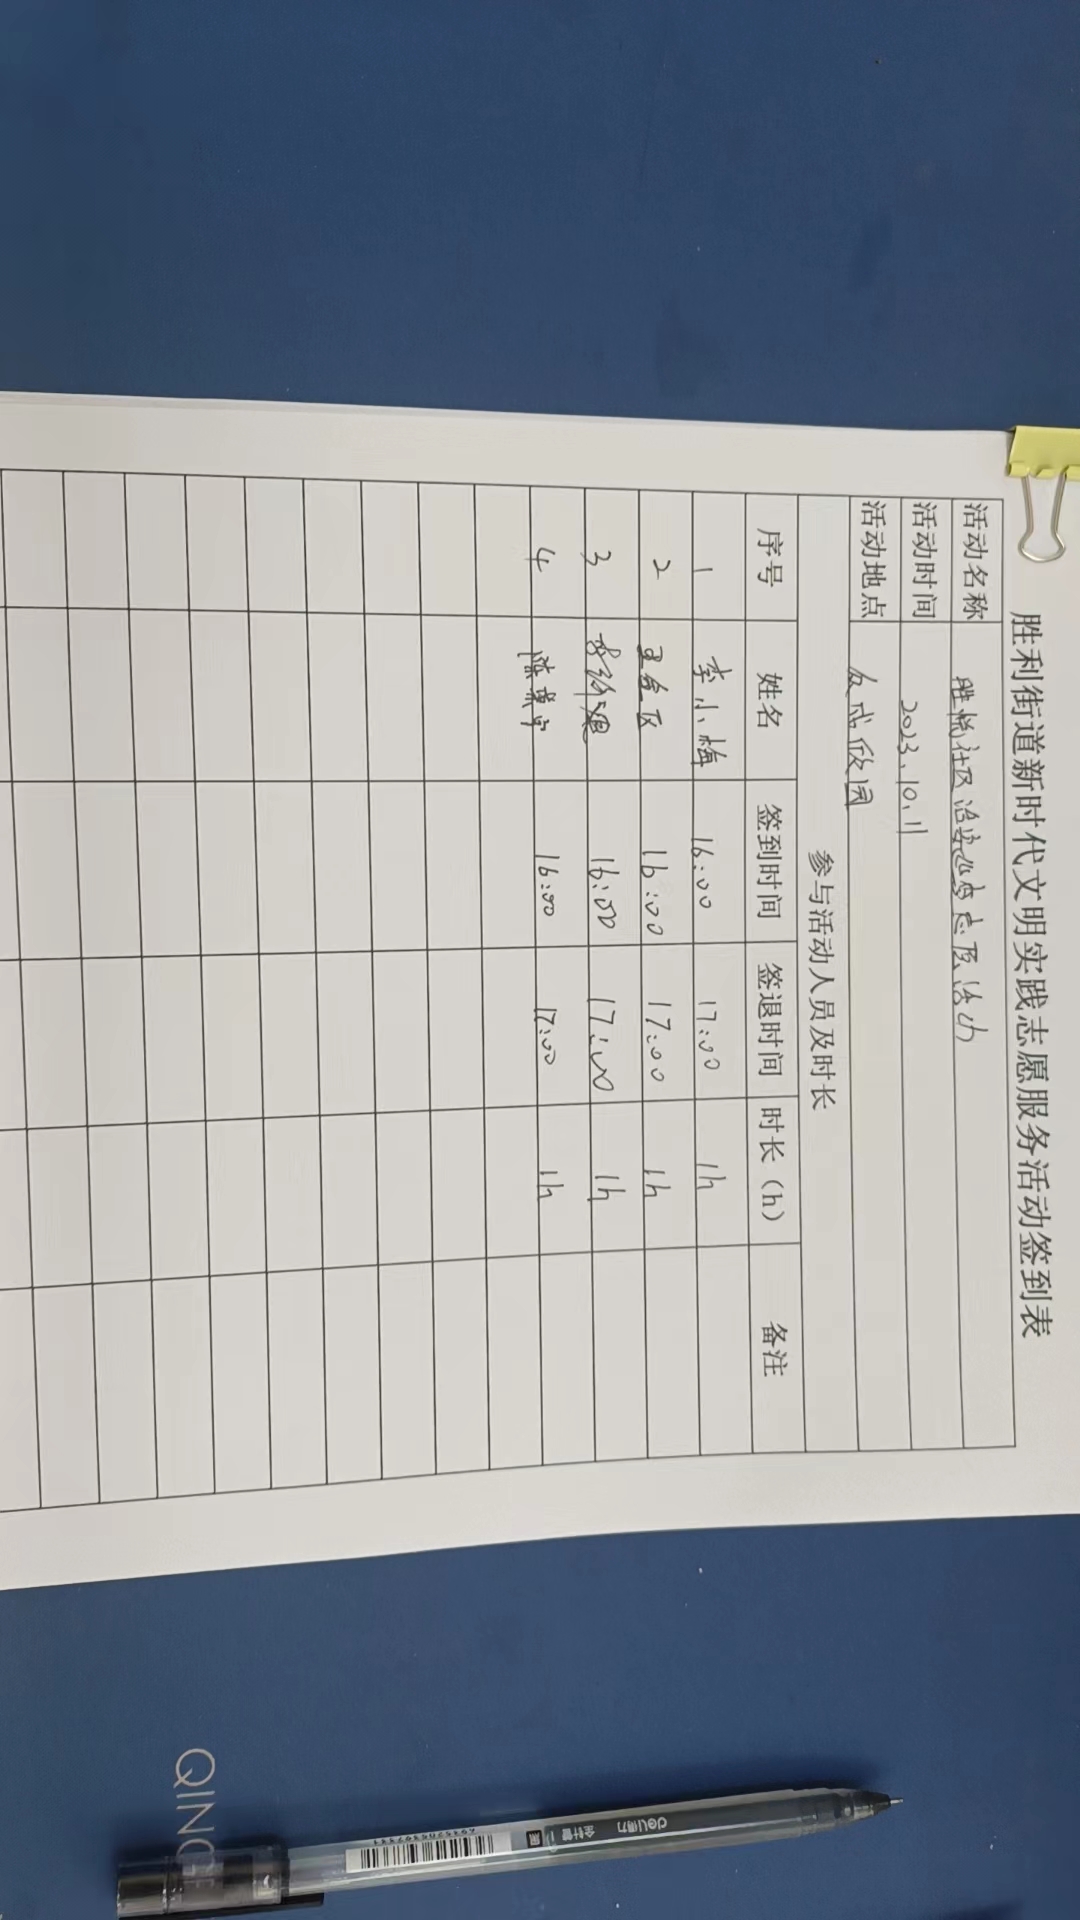 胜利街道新时代文明实践志愿服务活动签到表
活动名称 胜悦社区治安巡逻志愿活动
活动时间 2023.10.11
活动地点 友成欣园
参与活动人员及时长
序号 姓名 签到时间 签退时间 时长（h） 备注
1 李小梅 16:00 17:00 1h
2 16:00 17:00 1h
3 16:00 17:00 1h
4 陈 16:00 17:00 1h
QINGE
deli得力 全针管
6935205397331